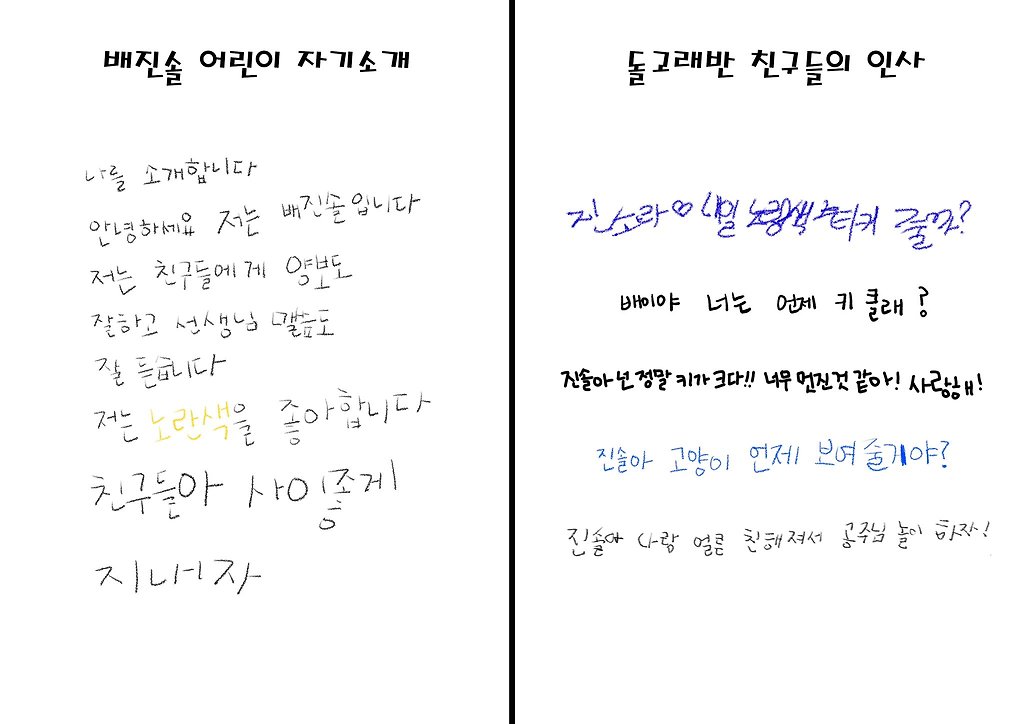 배진솔 어린이 자기소개
나를 소개합니다
안녕하세요 저는 배진솔입니다
저는 친구들에게 양보도
잘하고 선생님 말씀도
잘 듣습니다
저는 노란색을 좋아합니다
친구들아 사이좋게
지내자
돌고래반 친구들의 인사
진소라♡ 내일 줄까?
배이야 너는 언제 키 클래?
진솔아 넌 정말 키가 크다!! 너무 멋진것 같아! 사랑해!
진솔아 고양이 언제 보여줄거야?
진솔아 나랑 얼른 친해져서 공주님 놀이 하자!